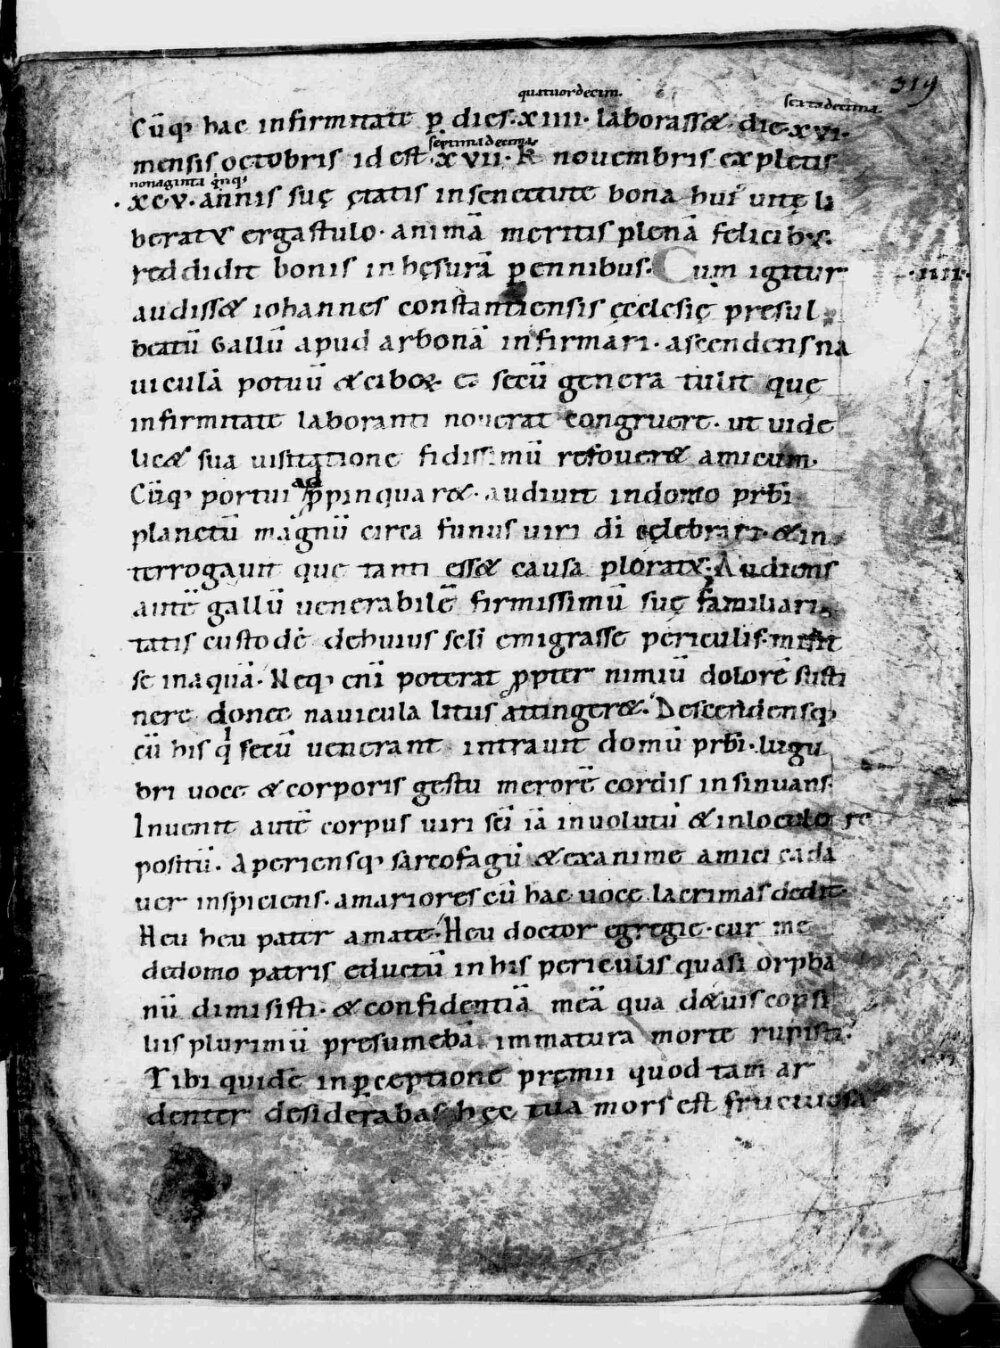 319
quatuordecim.
sexta decima.
Cūq; hac infirmitate ꝑ dies·xiiii·laborass&·die·xvi·
septima decima
mensis octobris id est·xvii·k̅ novembris expletis
nonaginta q̇nq;
·xc·v·annis suę ętatis in senectute bona hui' vitę li
beratꝰ ergastulo·animā meritis plenā felicib;
reddidit bonis inhęsurā ꝑennibus·Cum igitur
·iiii·
audiss& iohannes constantiensis ęcclesię presul
beatū Gallū apud arbonā infirmari·ascendens na
viculā potuū & ciboꝝ ea secū genera tulit quę
infirmitate laboranti noverat congruere·ut vide
lic& sua visitatione fidissimū refover& amicum·
ad
Cūq; portui ꝓpinquar&·audivit in domo prb̄i
planctū magnū circa funus viri dī celebrari·& in
terrogavit quę tanti ess& causa ploratꝰ·Audiens
autē gallū venerabilē firmissimū suę familiari
tatis custodē debuius scli emigrasse periculis·misit
se in aquā·Neq; enī poterat ꝓpter nimiū dolorē susti
nere donec navicula litus atting&·Descendensq;
cū his q̇ secū venerant intravit domū prb̄i·lugu
bri voce & corporis gestu merorē cordis insinuans·
Invenit autē corpus viri scī iā involutū & in loculo re
positū·Aperiensq; sarcofagū & exanime amici cada
ver inspiciens·amariores cū hac voce lacrimas dedit
Heu heu pater amate·Heu doctor egregie·cur me
de domo patris eductū in his periculis quasi orpha
nū dimisisti·& confidentiā meā qua de tuis consi
liis plurimū presumebā·immatura morte rupisti?
Tibi quidē in ꝑceptione pręmii quod tam ar
denter desiderabas hęc tua mors est fructuosa